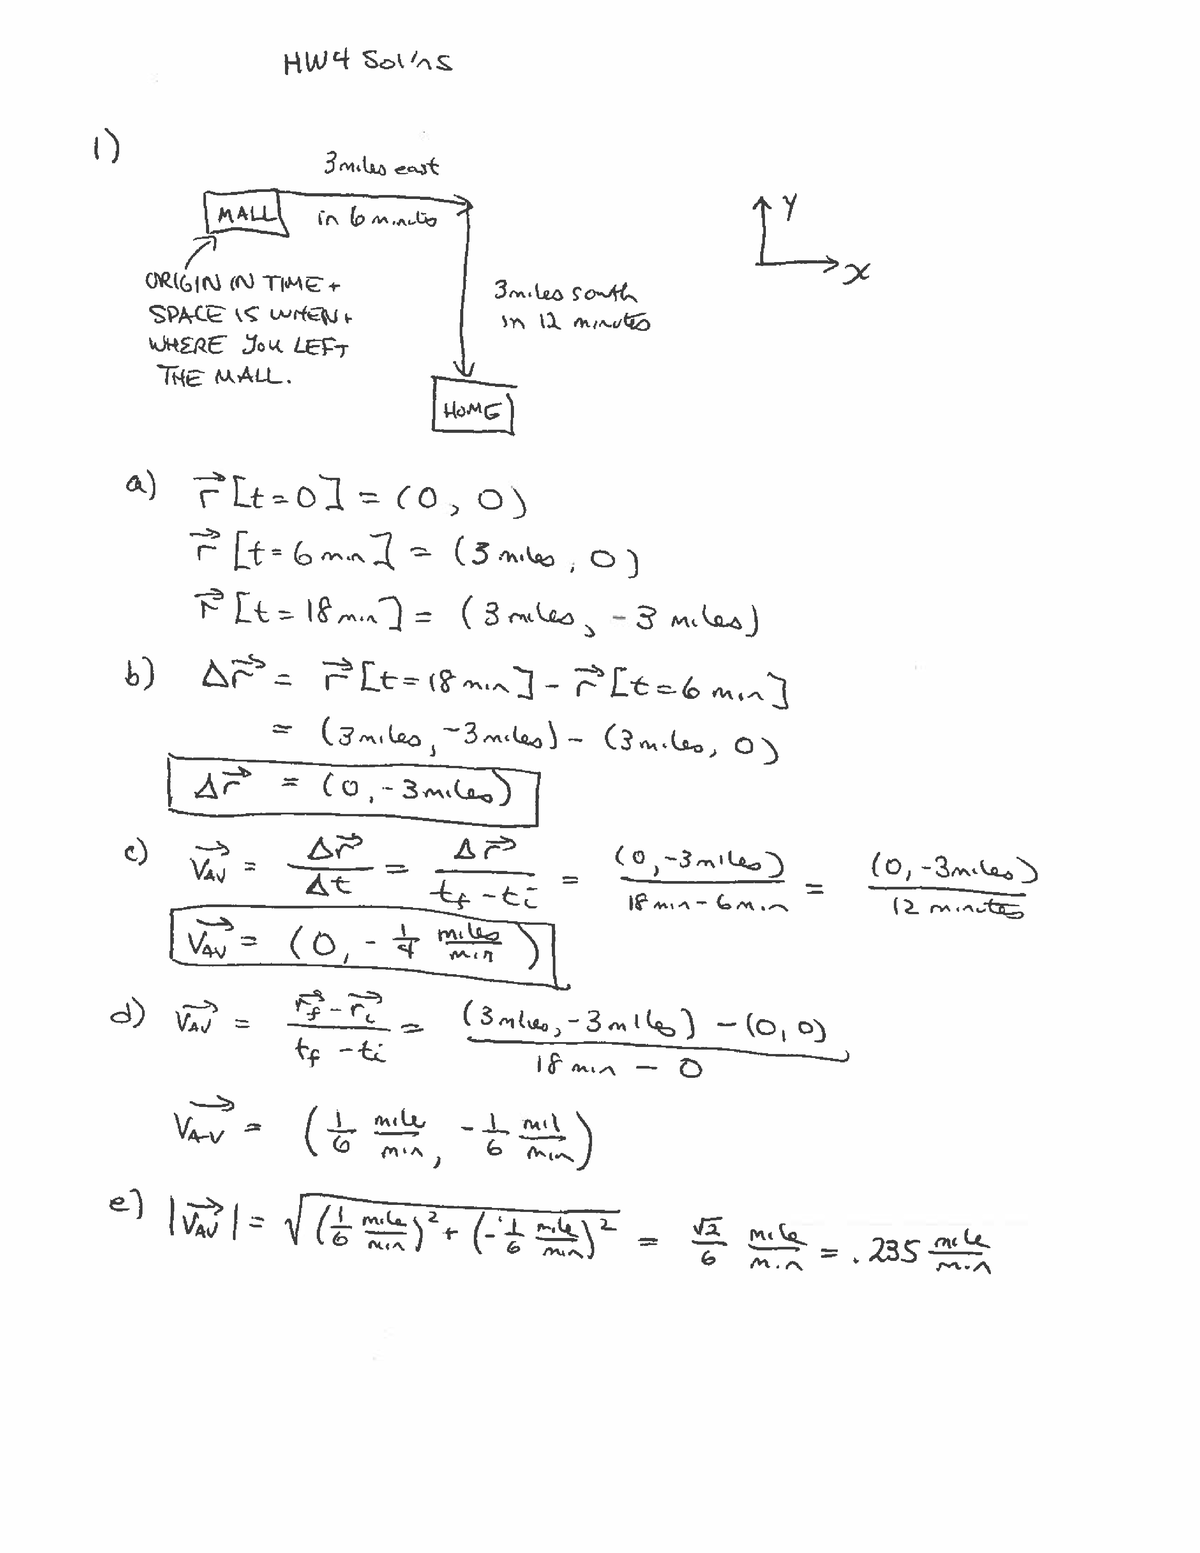 HW4 Sol'ns
1)
3 miles east
MALL
in 6 minutes
Y
X
ORIGIN IN TIME +
SPACE IS WHEN +
WHERE YOU LEFT
THE MALL.
3 miles south
in 12 minutes
HOME
a) r⃗ [t=0] = (0, 0)
r⃗ [t=6 min] = (3 miles, 0)
r⃗ [t=18 min] = (3 miles, -3 miles)
b) Δr⃗ = r⃗ [t=18 min] - r⃗ [t=6 min]
= (3 miles, -3 miles) - (3 miles, 0)
Δr⃗ = (0, -3 miles)
c) V⃗AV = Δr⃗/Δt = Δr⃗/(tf - ti) = (0, -3 miles)/(18 min - 6 min) = (0, -3 miles)/(12 minutes)
V⃗AV = (0, -1/4 miles/min)
d) V⃗AV = (r⃗f - r⃗i)/(tf - ti) = ((3 miles, -3 miles) - (0, 0))/(18 min - 0)
V⃗AV = (1/6 mile/min, -1/6 mil/min)
e) |V⃗AV| = √((1/6 mile/min)² + (-1/6 mile/min)²) = √2/6 mile/min = .235 mile/min